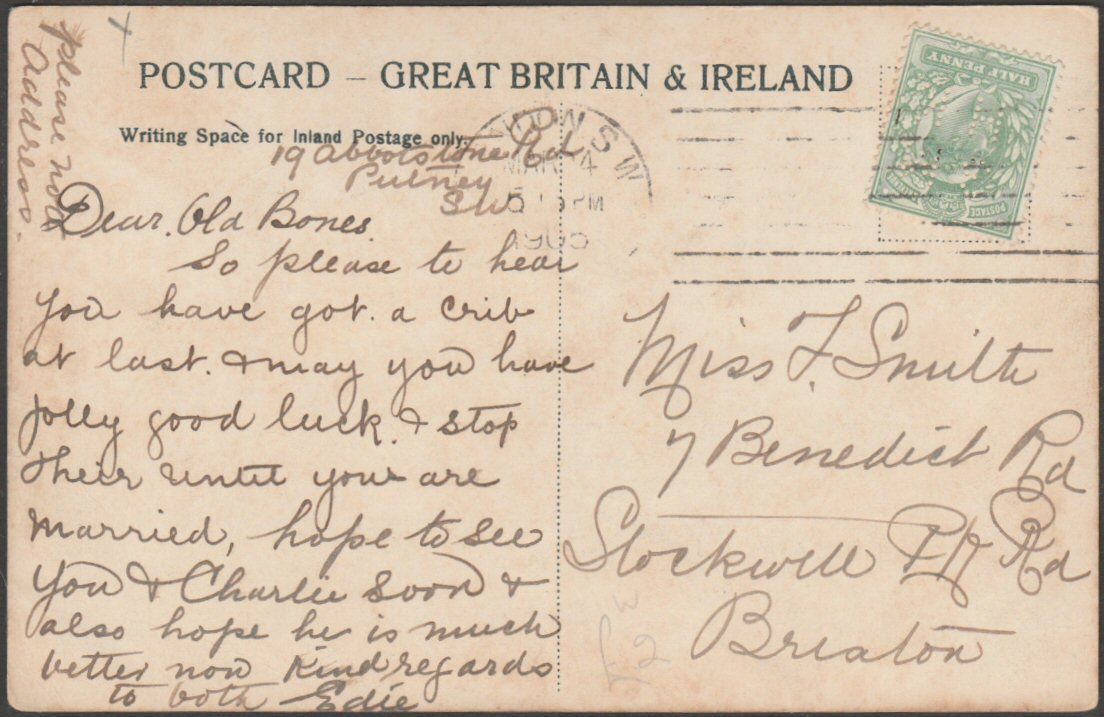 please note
address.
x
POSTCARD – GREAT BRITAIN & IRELAND
Writing Space for Inland Postage only.
19 Abbotstone Rd
Putney
SW
Dear Old Bones.
So please to hear
you have got. a crib
at last. & may you have
jolly good luck. & stop
their until your are
married, hope to see
you & Charlie soon &
also hope he is much
better now Kind regards
to both Edie
HALF PENNY
POSTAGE
LONDON S.W
MAR 4
5 15 PM
190
Miss F. Smith
7 Benedict Rd
Stockwell Rd
Brixton
£2